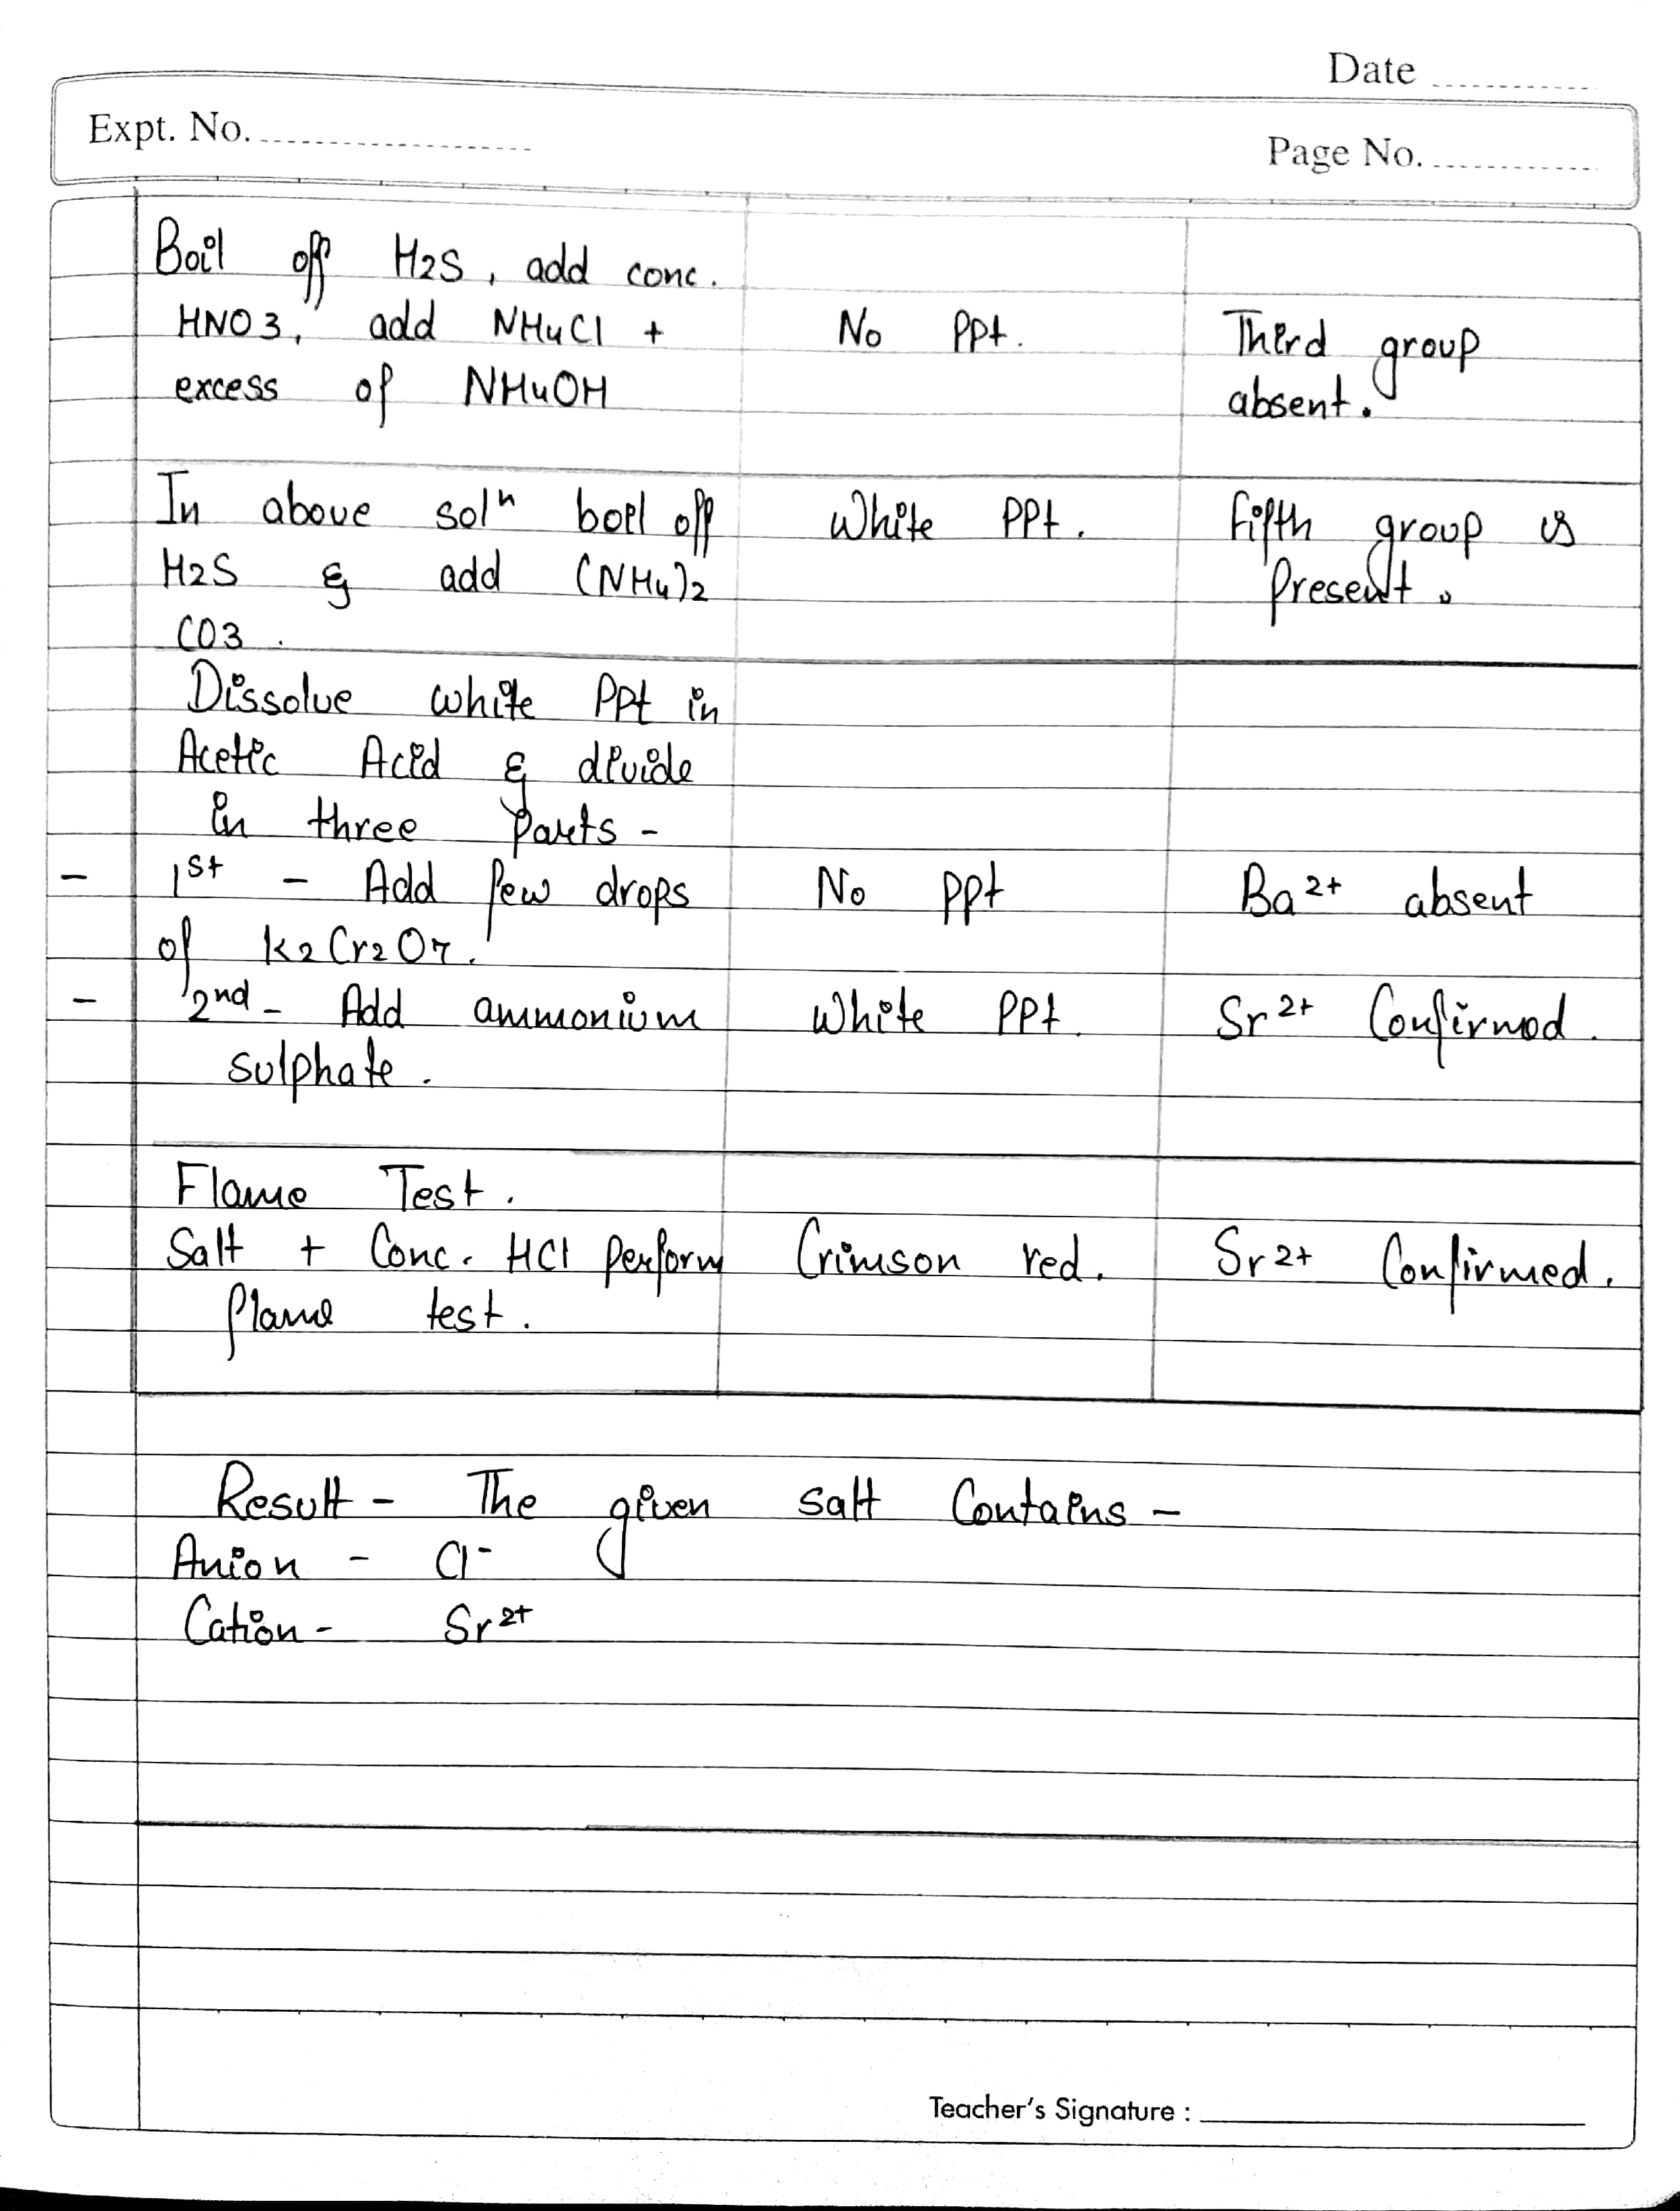 Date
Expt. No.
Page No.
Boil off H2S, add conc.
HNO3, add NH4Cl + No ppt. Third group
excess of NH4OH absent.
In above solⁿ boil off White ppt. Fifth group is
H2S & add (NH4)2 Present.
CO3.
Dissolve white ppt in
Acetic Acid & divide
in three parts -
- 1st - Add few drops No ppt Ba2+ absent
of K2Cr2O7.
- 2nd - Add ammonium White ppt. Sr2+ Confirmed.
sulphate.
Flame Test.
Salt + Conc. HCl perform Crimson red. Sr2+ Confirmed.
flame test.
Result - The given salt Contains -
Anion - Cl-
Cation - Sr2+
Teacher's Signature :